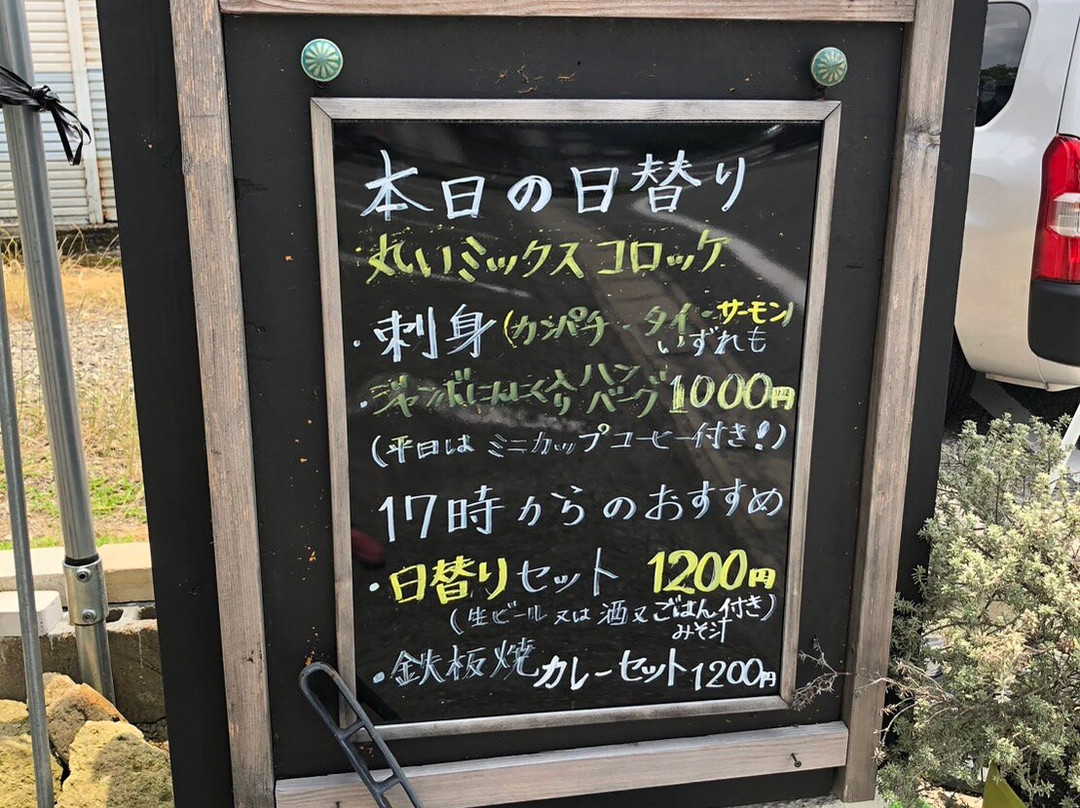 本日の日替り
・丸いミックスコロッケ
・刺身(カンパチ・タイ・サーモン)
いずれも
・ジャンボにんにく入りハンバーグ 1000円
(平日は ミニカップコーヒー付き!)
17時からのおすすめ
・日替りセット 1200円
(生ビール又は酒又ごはん付き)
みそ汁
・鉄板焼カレーセット1200円